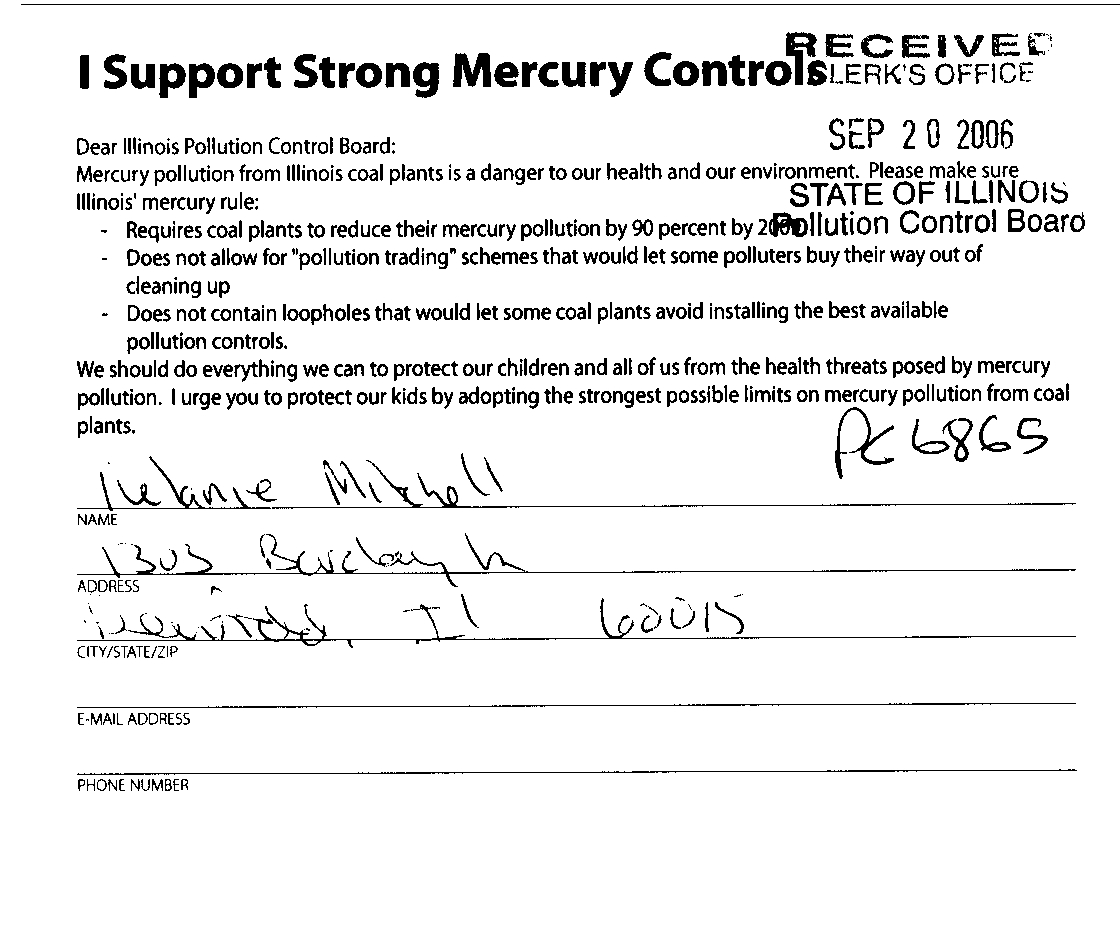 I Support Strong Mercury Controls
RECEIVED
LERK'S OFFICE
SEP 20 2006
STATE OF ILLINOIS
Pollution Control Board
Dear Illinois Pollution Control Board:
Mercury pollution from Illinois coal plants is a danger to our health and our environment. Please make sure
Illinois' mercury rule:
- Requires coal plants to reduce their mercury pollution by 90 percent by
- Does not allow for "pollution trading" schemes that would let some polluters buy their way out of
cleaning up
- Does not contain loopholes that would let some coal plants avoid installing the best available
pollution controls.
We should do everything we can to protect our children and all of us from the health threats posed by mercury
pollution. I urge you to protect our kids by adopting the strongest possible limits on mercury pollution from coal
plants.
PC 6865
Melanie Mitchell
NAME
1303 Barclay Ln
ADDRESS
Il 60015
CITY/STATE/ZIP
E-MAIL ADDRESS
PHONE NUMBER